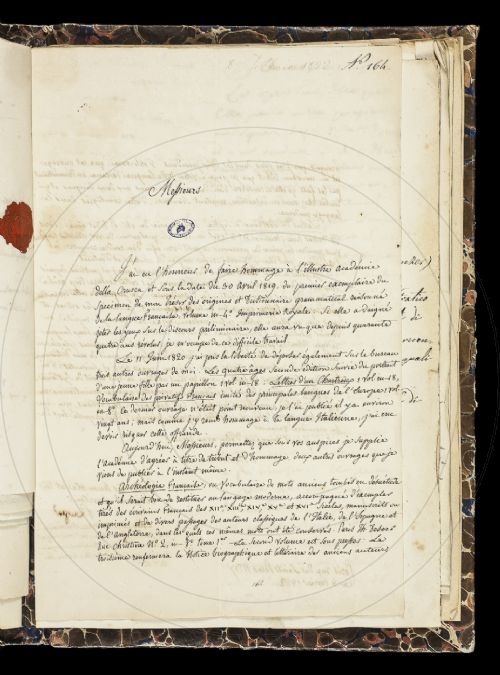 N.º 164
Messieurs
J'ai eu l'honneur de faire hommage à l'illustre académie
della Crusca et sous la date du 30 Avril 1819. du premier exemplaire du
Specimen de mon trésor des origines et Dictionnaire grammatical raisonné
de la langue française, volume in-4º Imprimerie Royale. Si elle a daigné
jeter les yeux sur le discours préliminaire, elle aura vu que depuis quarante
quatre ans révolus, je m'occupe de ce difficile travail.
Le 11 Juin 1820 j'ai pris la liberté de déposer également sur le bureau
trois autres ouvrages de moi. Les quatre âges seconde édition suivie du portrait
d'une jeune fille par un papillon 1 vol in-18: Lettres d'un Chartreux 1 vol in-18,
Vocabulaire des privatifs français imités des principales langues de l'Europe 1 vol
in-8º le dernier ouvrage n'était point nouveau, je l'ai publié il y a environ
vingt ans; mais comme j'y rends hommage à la langue Italienne, j'ai cru
devoir risquer cette offrande.
Aujourd'hui, Messieurs, permettez que sous vos auspices je supplie
l'académie d'agréer à titre de tribut et d'hommage deux autres ouvrages que je
viens de publier à l'instant même.
Archéologie française, ou Vocabulaire de mots anciens tombés en désuétude
et qu'il serait bon de restituer au langage moderne, accompagné d'exemples
tirés des écrivains français des XIIe XIIIe XIVe XVe et XVIe Siecles, manuscrits ou
imprimés et de divers passages des auteurs classiques de l'Italie, de l'Espagne et
de l'Angleterre, dans lesquels ces mêmes mots ont été conservés. Paris
rue Christine Nº 2, in-8º tome 1er. Le Second volume est sous presse. Le
troisième renfermera la Notice biographique et littéraire des anciens auteurs